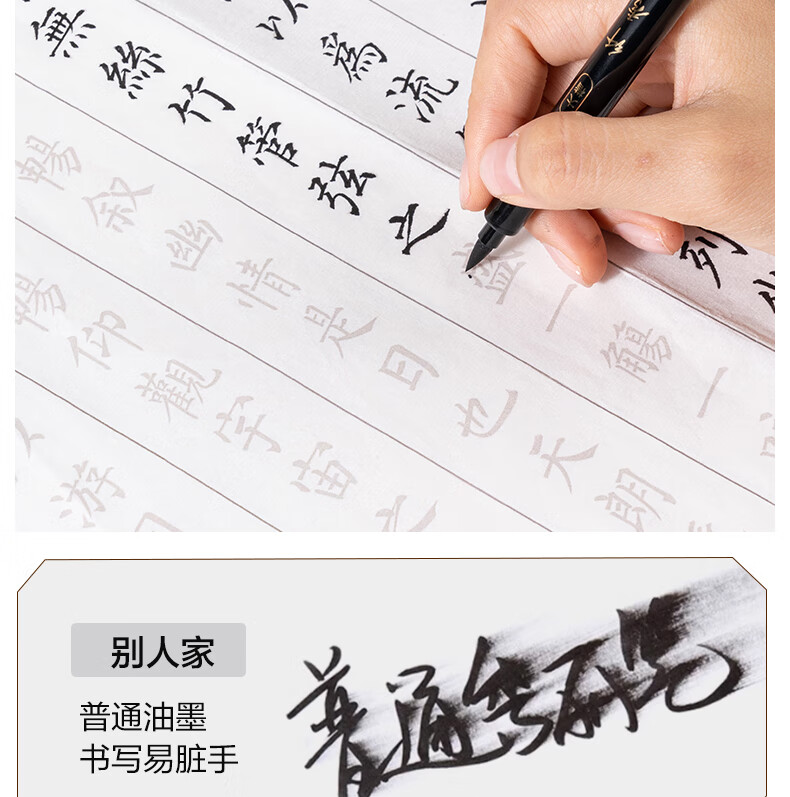 以為流列
無絲竹管弦之盛一觴一
暢叙幽情是日也天朗
暢仰觀宇宙之
游
别人家
普通油墨
书写易脏手
普通秀丽笔